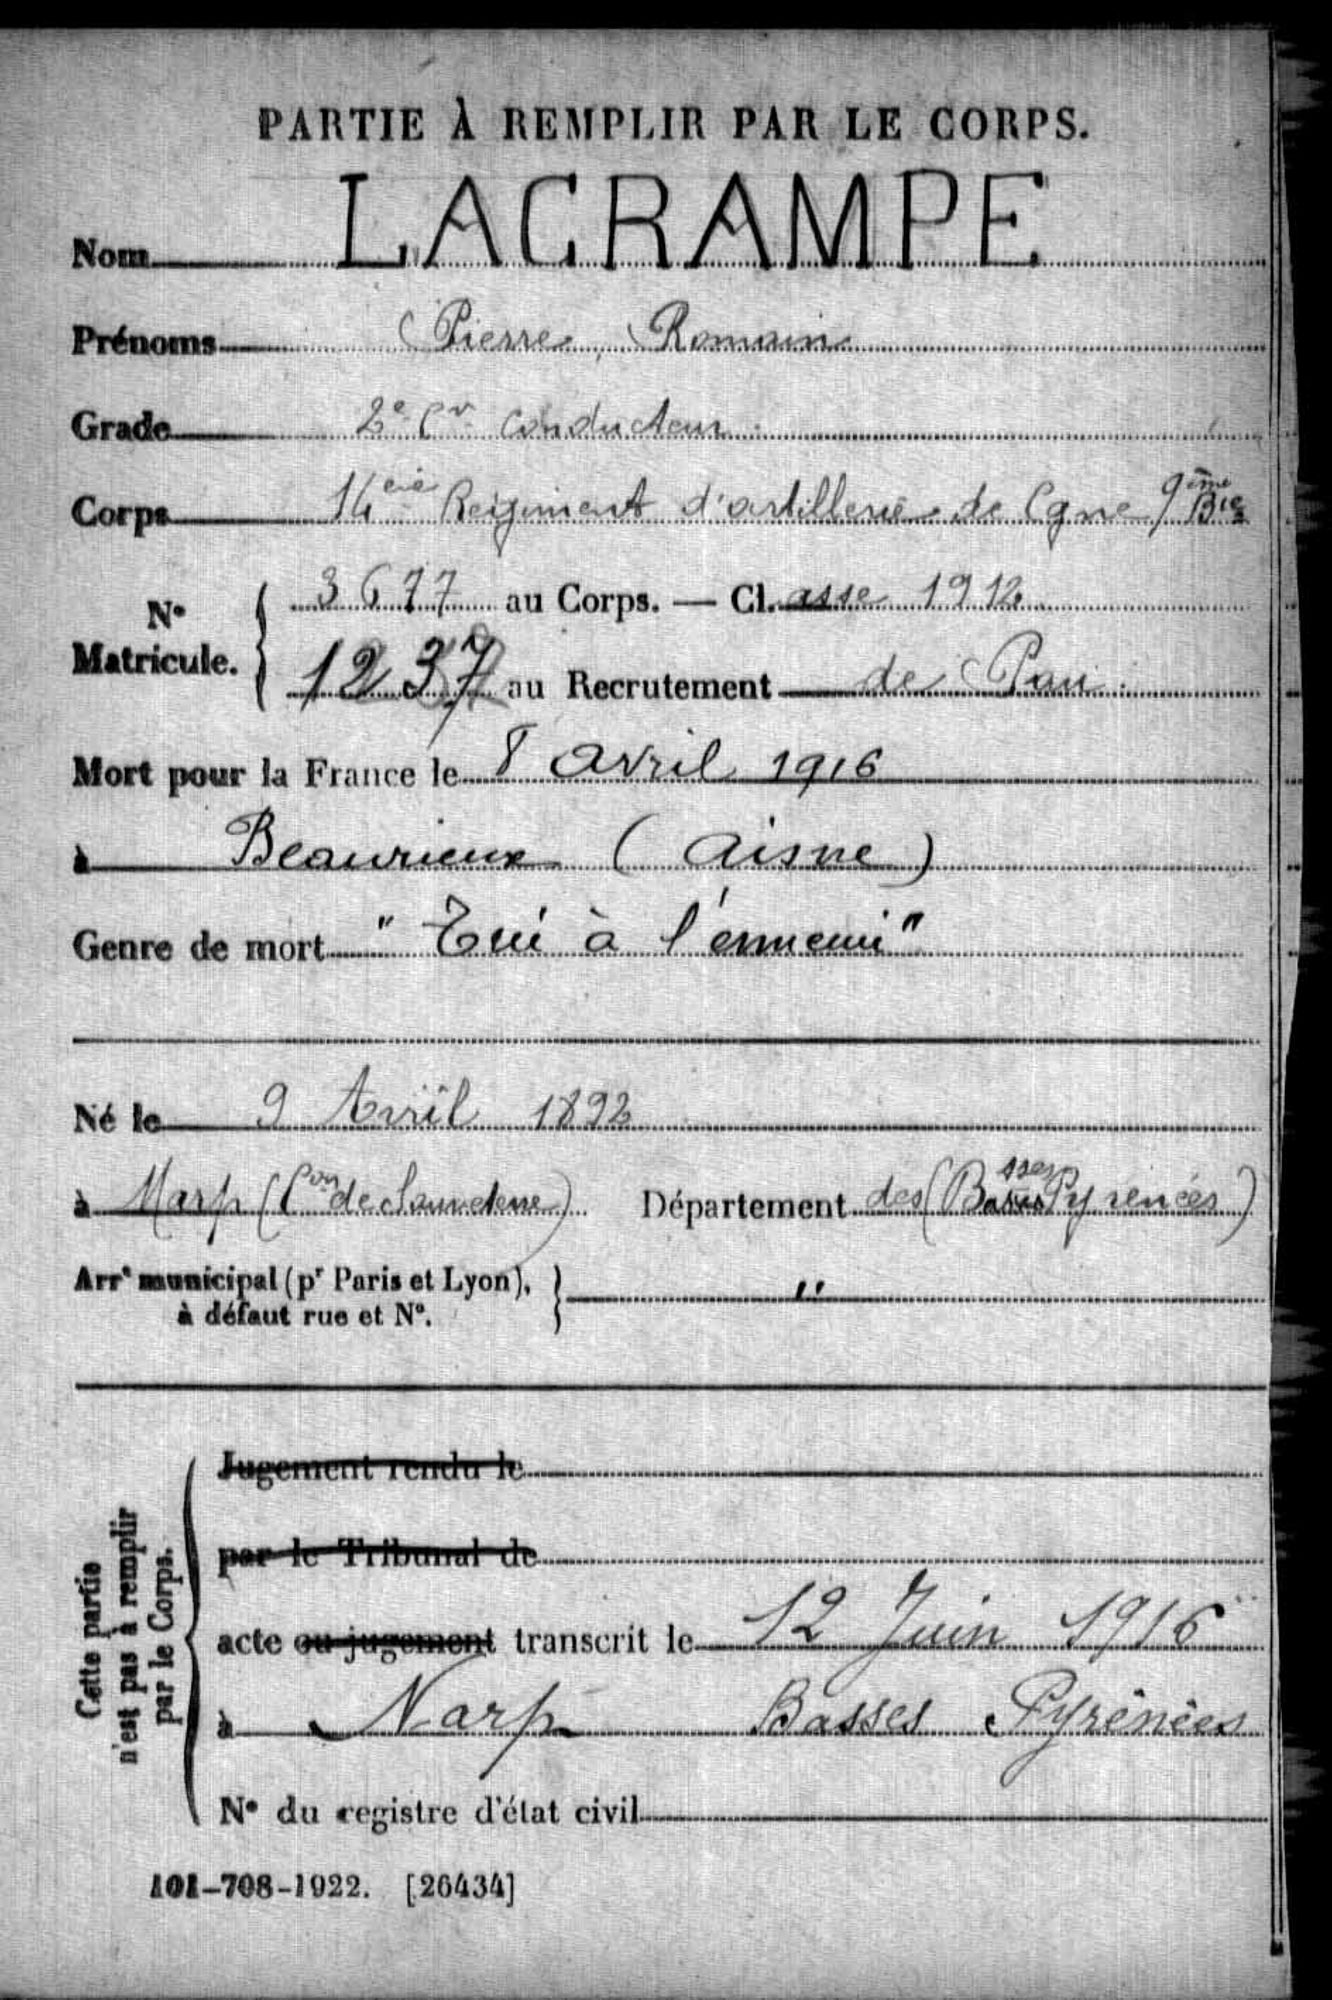 PARTIE À REMPLIR PAR LE CORPS.
Nom LACRAMPE
Prénoms Pierre, Romain
Grade 2e Cr Conducteur
Corps 14eme Regiment d'artillerie de Cgne 9ème Bie
N° Matricule. 3677 au Corps. — Cl. asse 1912
1237 au Recrutement de Pau
Mort pour la France le 8 Avril 1916
à Beaurieux (Aisne)
Genre de mort "Tué à l'ennemi"
Né le 9 Avril 1892
à Narp (Con de Sauveterre) Département des (Basses Pyrénées)
Arrt municipal (pr Paris et Lyon), "
à défaut rue et N°.
Cette partie
n'est pas à remplir
par le Corps.
Jugement rendu le
par le Tribunal de
acte ou jugement transcrit le 12 Juin 1916
à Narp Basses Pyrénées
N° du registre d'état civil
101-708-1922. [26434]